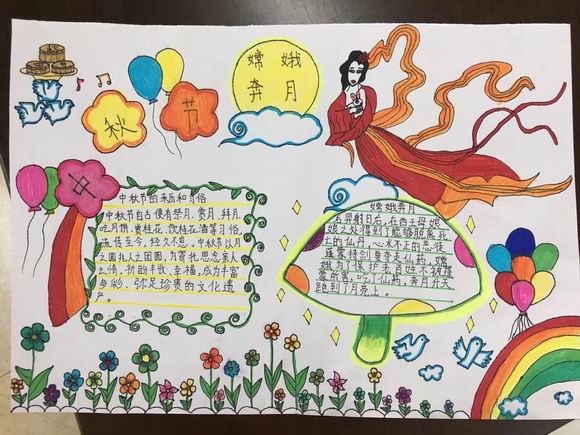 中
秋
节
嫦娥
奔月
中秋节的来历和习俗
中秋节自古便有祭月、赏月、拜月、
吃月饼、赏桂花、饮桂花酒等习俗,
流传至今,经久不息。中秋节以月
之圆兆人之团圆,为寄托思念亲人
之情,祈盼丰收、幸福,成为丰富
多彩、弥足珍贵的文化遗
产。
嫦娥奔月
后羿射日后,在西王母娘
娘之处得到了能够脱离死
生的仙丹,心术不正的恶徒
蓬蒙持剑
嫦
娥为了保护老百姓不被蓬
蒙
,吃了仙药,奔月升天
跑到了月亮上。